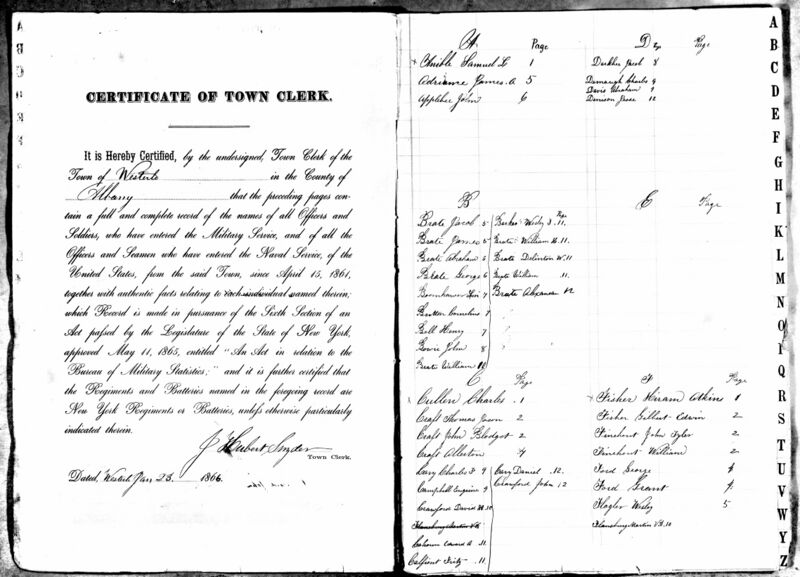 CERTIFICATE OF TOWN CLERK.
It is Hereby Certified, by the undersigned, Town Clerk of the
Town of Westerlo in the County of
Albany that the preceding pages con-
tain a full and complete record of the names of all Officers and
Soldiers, who have entered the Military Service, and of all the
Officers and Seamen who have entered the Naval Service, of the
United States, from the said Town, since April 15, 1861,
together with authentic facts relating to each individual named therein;
which Record is made in pursuance of the Sixth Section of an
Act passed by the Legislature of the State of New York,
approved May 11, 1865, entitled "An Act in relation to the
Bureau of Military Statistics;" and it is further certified that
the Regiments and Batteries named in the foregoing record are
New York Regiments or Batteries, unless otherwise particularly
indicated therein.
J Hubert Snyder
Town Clerk.
Dated, Westerlo Jan 23. 1866.
A Page
Samuel L 1
Adriance James. A 5
Appleber John 6
B
Brate Jacob 5
Brate James 5
Brate Abraham 5
Brate George 6
7
Cornelius 7
Bell Henry 7
John 8
William 10
Page
Wesley 11.
Brate William H. 11.
Brate W. 11
William 11.
12
C Page
Cullen Charles 1
Craft Thomas Jason 2
Craft John Blodget 2
Craft Allerton 4
Charles F 9
Campbell Eugene 9
Crawford David W. 10
Calhoun Edward A .11.
.11.
Cary Daniel .12.
Crawford John .12
D Page
Jacob 8
Charles 9
Davis Abraham 9
Denison Jesse 12
E Page
F Page
Fisher Hiram Atkins 1
Fisher Gilbert Edwin 2
Finehout John Tyler 2
Finehout William 2
Ford George 4
Ford Grant 4
Flagler Wesley 5
Flansburg Martin V.B. 10
A
B
C
D
E
F
G
H
I
K
L
M
N
O
P
Q
R
S
T
U
V
W
Y
Z